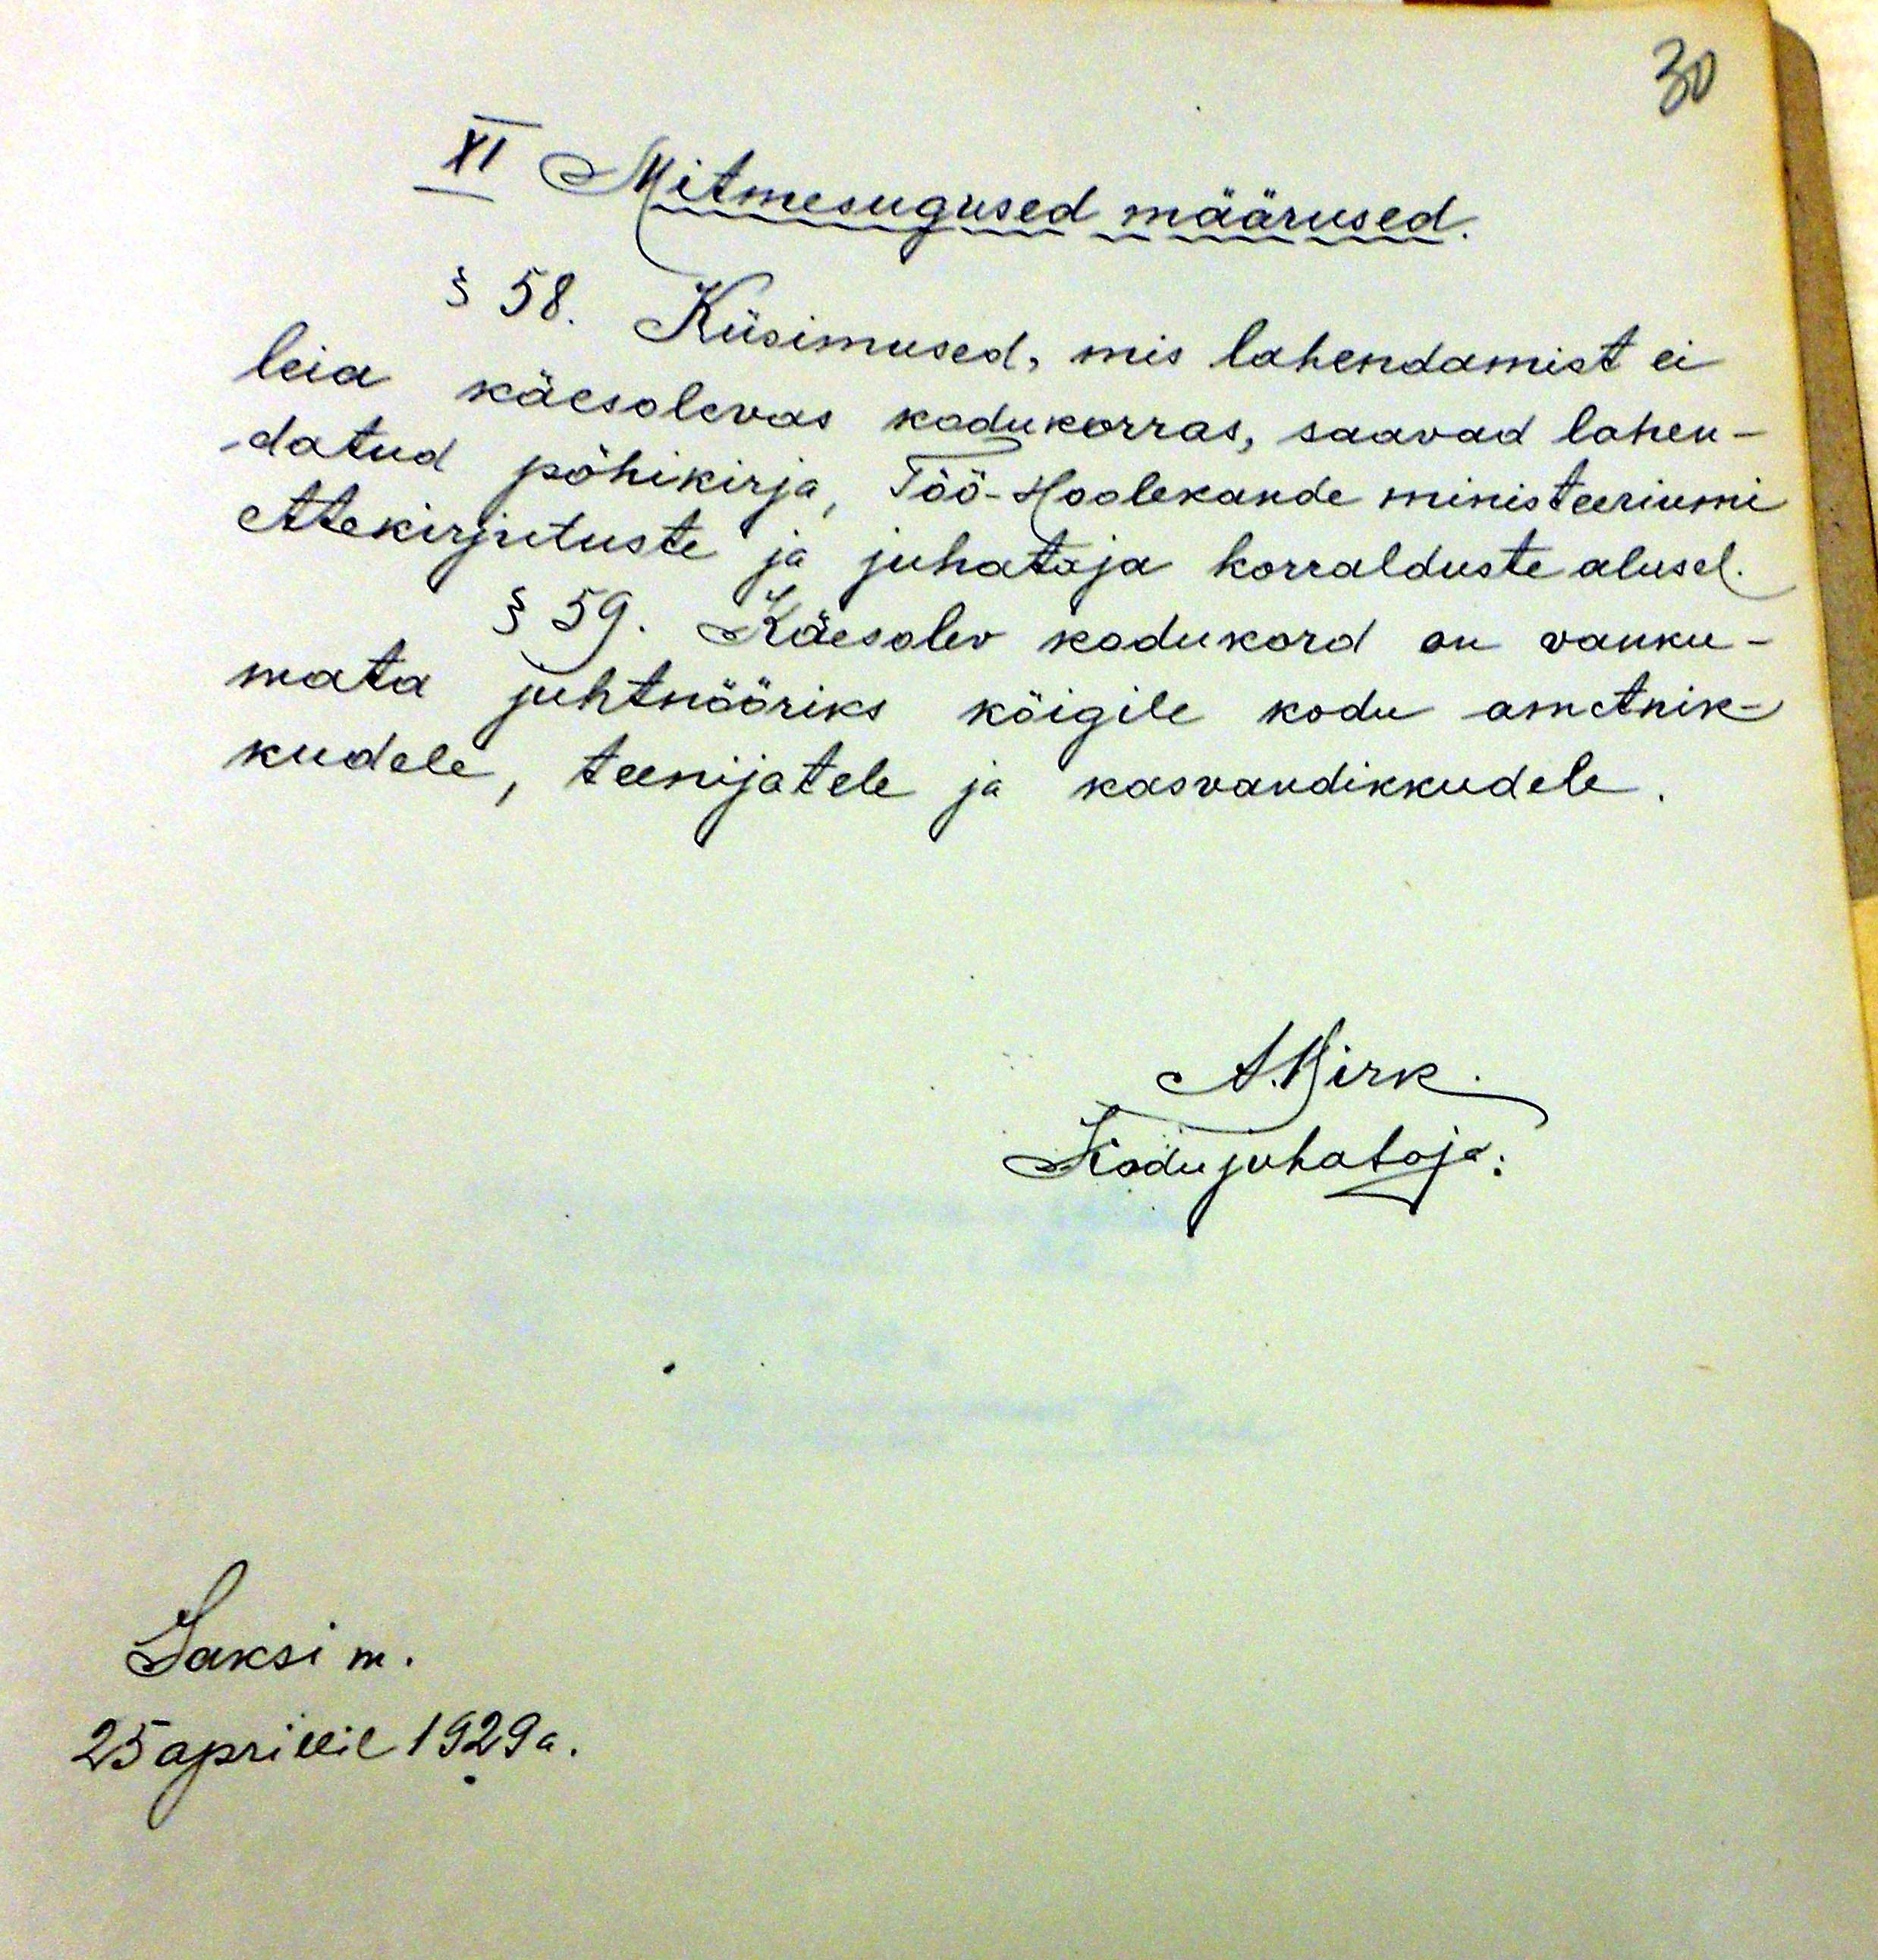 30
XI Mitmesugused määrused.
§ 58. Küsimused, mis lahendamist ei
leia käesolevas kodukorras, saavad lahen-
-datud põhikirja, Töö-Hoolekande ministeeriumi
ettekirjutuste ja juhataja korralduste alusel.
§ 59. Käesolev kodukord on vanku-
mata juhtnööriks kõigile kodu ametnik-
kudele, teenijatele ja kasvandikkudele.
A. Kirk.
Kodujuhataja:
Jaksi m.
25 aprillil 1929 a.